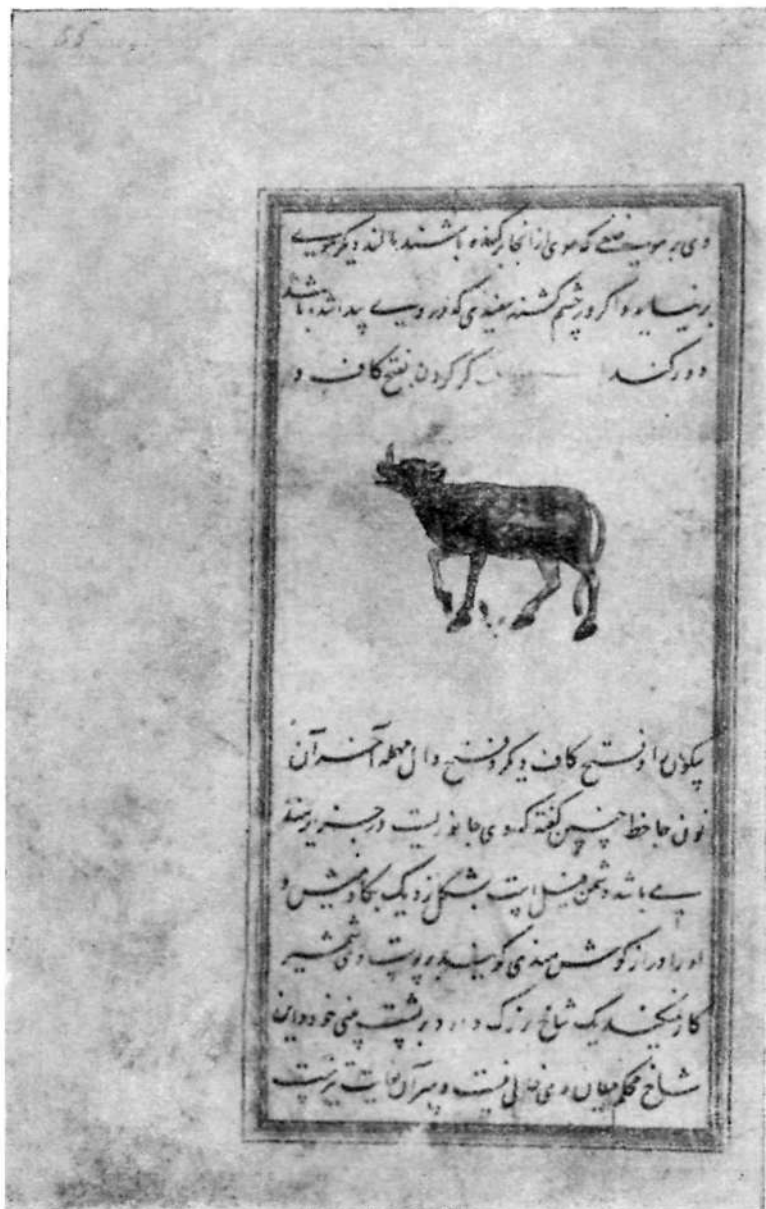 55
وی بر موضعی که موی از انجا برکنده باشند بمالند دیگر موی
برنیاید و اگر در چشم کشند سفیدی که در وی پیدا شده باشد
دور کند کرکدن بفتح کاف و
سکون را و فتح کاف دیگر و فتح دال مهمله آخر آن
نون جاحظ چنین گفته که وی جانوریست در جزایر هند
باشد دشمن فیل است بشکل نزدیک بگاومیش و
او را درازگوش هندی گویند و بر پوست وی شمشیر
کار نمیکند یک شاخ بزرگ دارد بر پشت بینی خود و این
شاخ محکم میان وی خالی نیست و سر آن بغایت تیزست